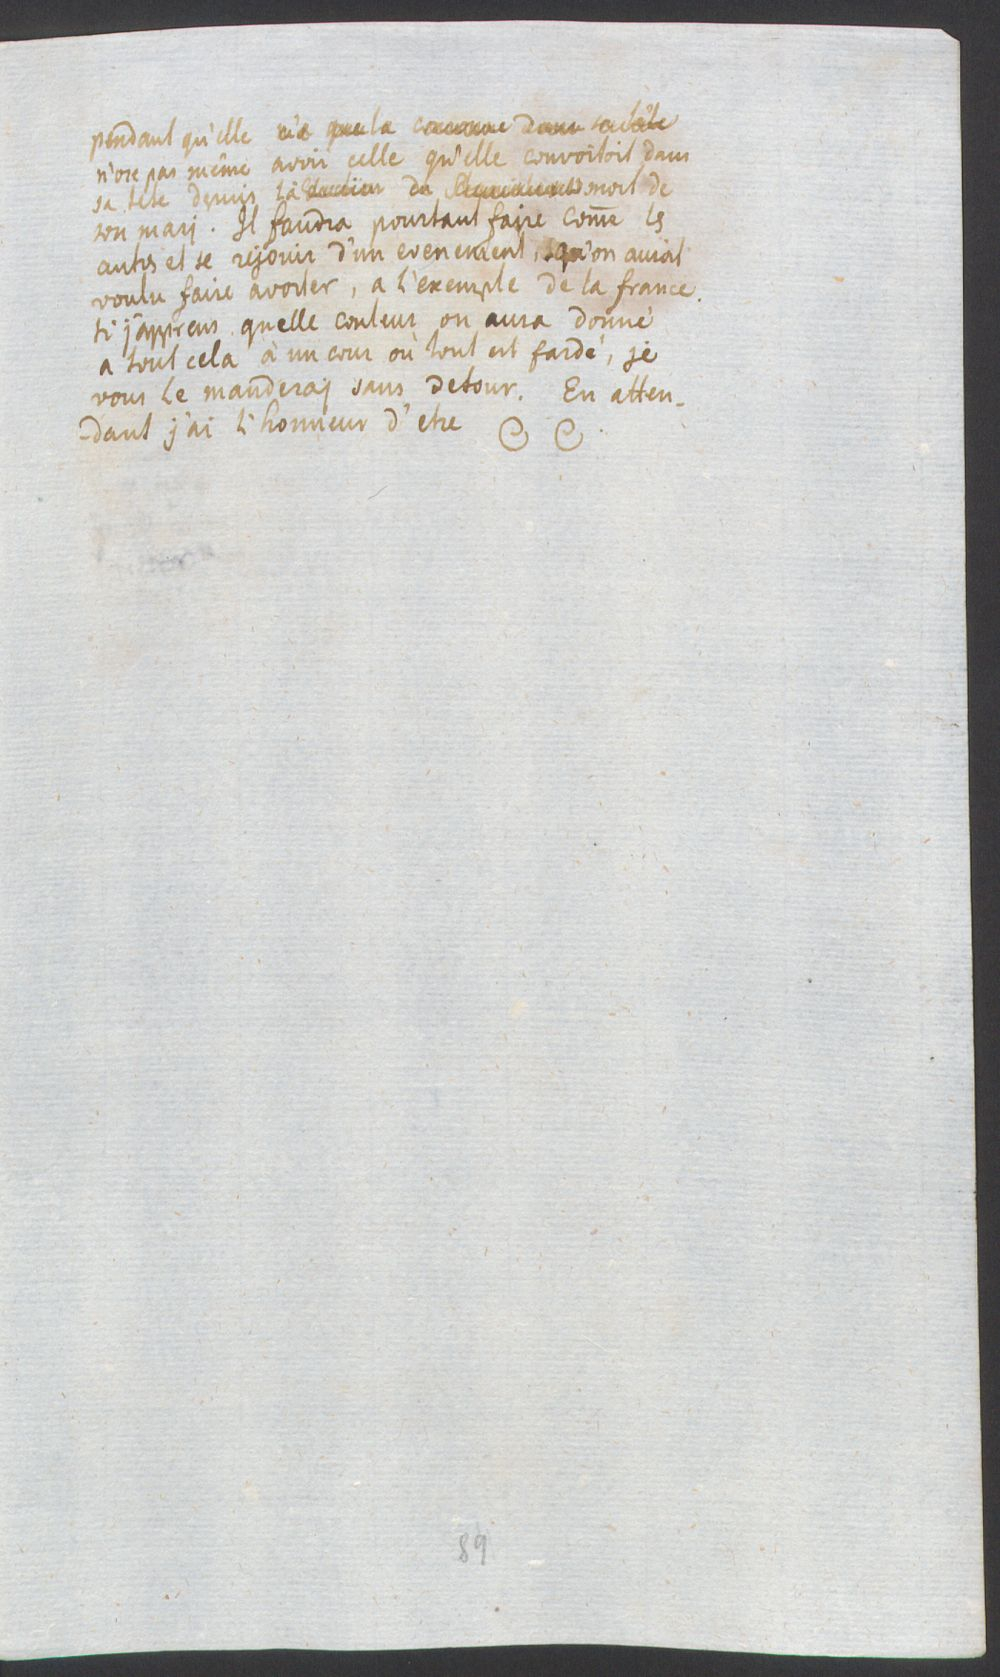 pendant qu'elle n'a que la couronne dans sa tête
n'ose pas même avoir celle qu'elle convoitoit dans
sa tete depuis la du mort de
son marj. Il faudra pourtant faire com̄e les
autres et se rejouir d'un evenement, qu'on auroit
voulu faire avorter, a l'exemple de la france.
si j'apprens quelle couleur on aura donné
a tout cela à un cour où tout est fardé, je
vous le manderaj sans detour. En atten-
-dant j'ai l'honneur d'etre
89